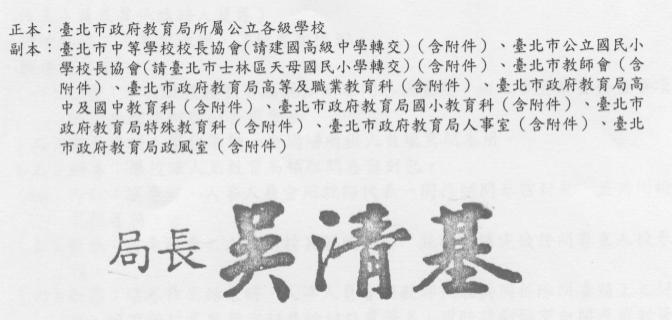 正本：臺北市政府教育局所屬公立各級學校
副本：臺北市中等學校校長協會(請建國高級中學轉交)(含附件)、臺北市公立國民小
學校長協會(請臺北市士林區天母國民小學轉交)(含附件)、臺北市教師會(含
附件)、臺北市政府教育局高等及職業教育科(含附件)、臺北市政府教育局高
中及國中教育科(含附件)、臺北市政府教育局國小教育科(含附件)、臺北市
政府教育局特殊教育科(含附件)、臺北市政府教育局人事室(含附件)、臺北
市政府教育局政風室(含附件)
局長 吳清基